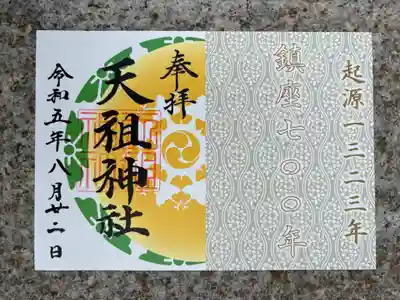 起源一三二三年
鎮座七〇〇年
奉拝
天祖神社
令和五年八月廿二日